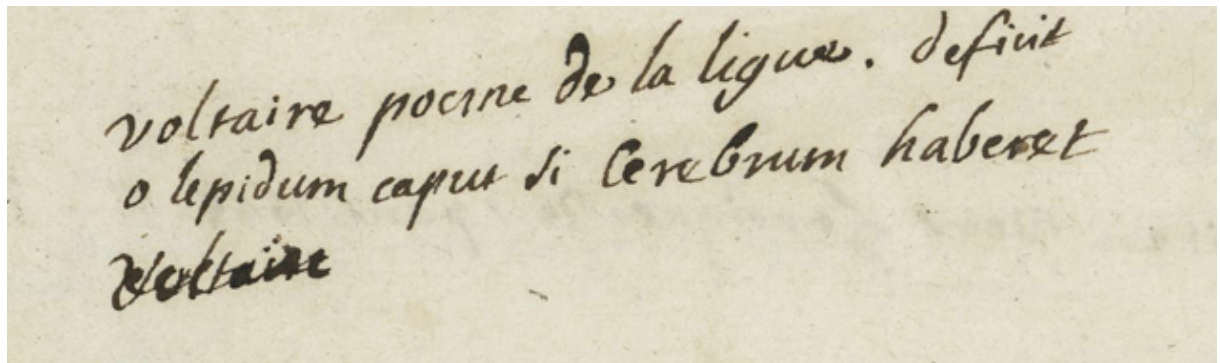 voltaire poeme de la ligue. deficit
o lepidum caput si Cerebrum haberet
voltaire